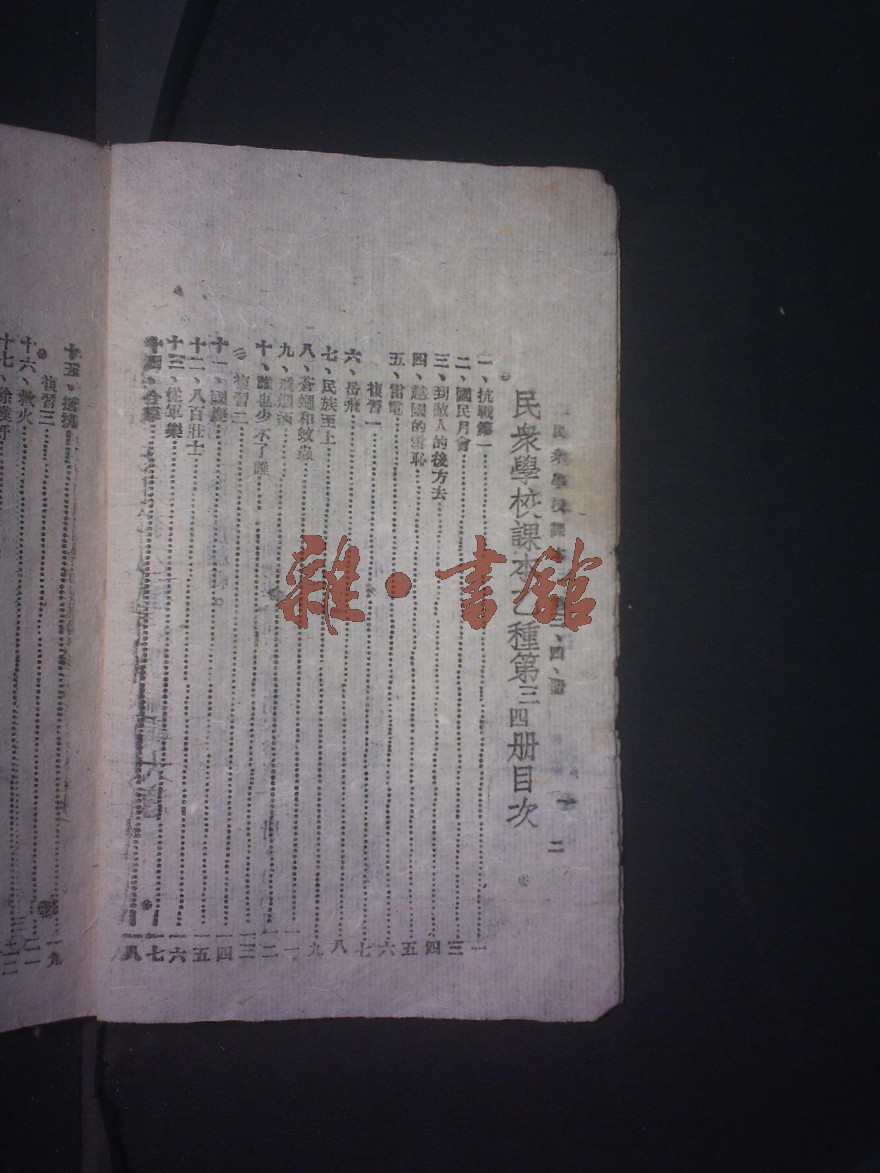 民衆學校課本 三、四、册
二
民衆學校課本乙種第三四册目次
一、抗戰第一 一
二、國民月會 三
三、到敵人的後方去 四
四、越國的雪恥 五
五、雷電 六
複習一 七
六、岳飛 八
七、民族至上 九
八、蒼蠅和蚊蟲 一一
九、戒烟酒 一二
十、誰也少不了誰 一三
複習二 一四
十一、國樂 一五
十二、八百壯士 一六
十三、從軍樂 一七
十四、合羣 一八
十五、抵抗 一九
複習三 二一
十六、救火
十七、
雜·書館